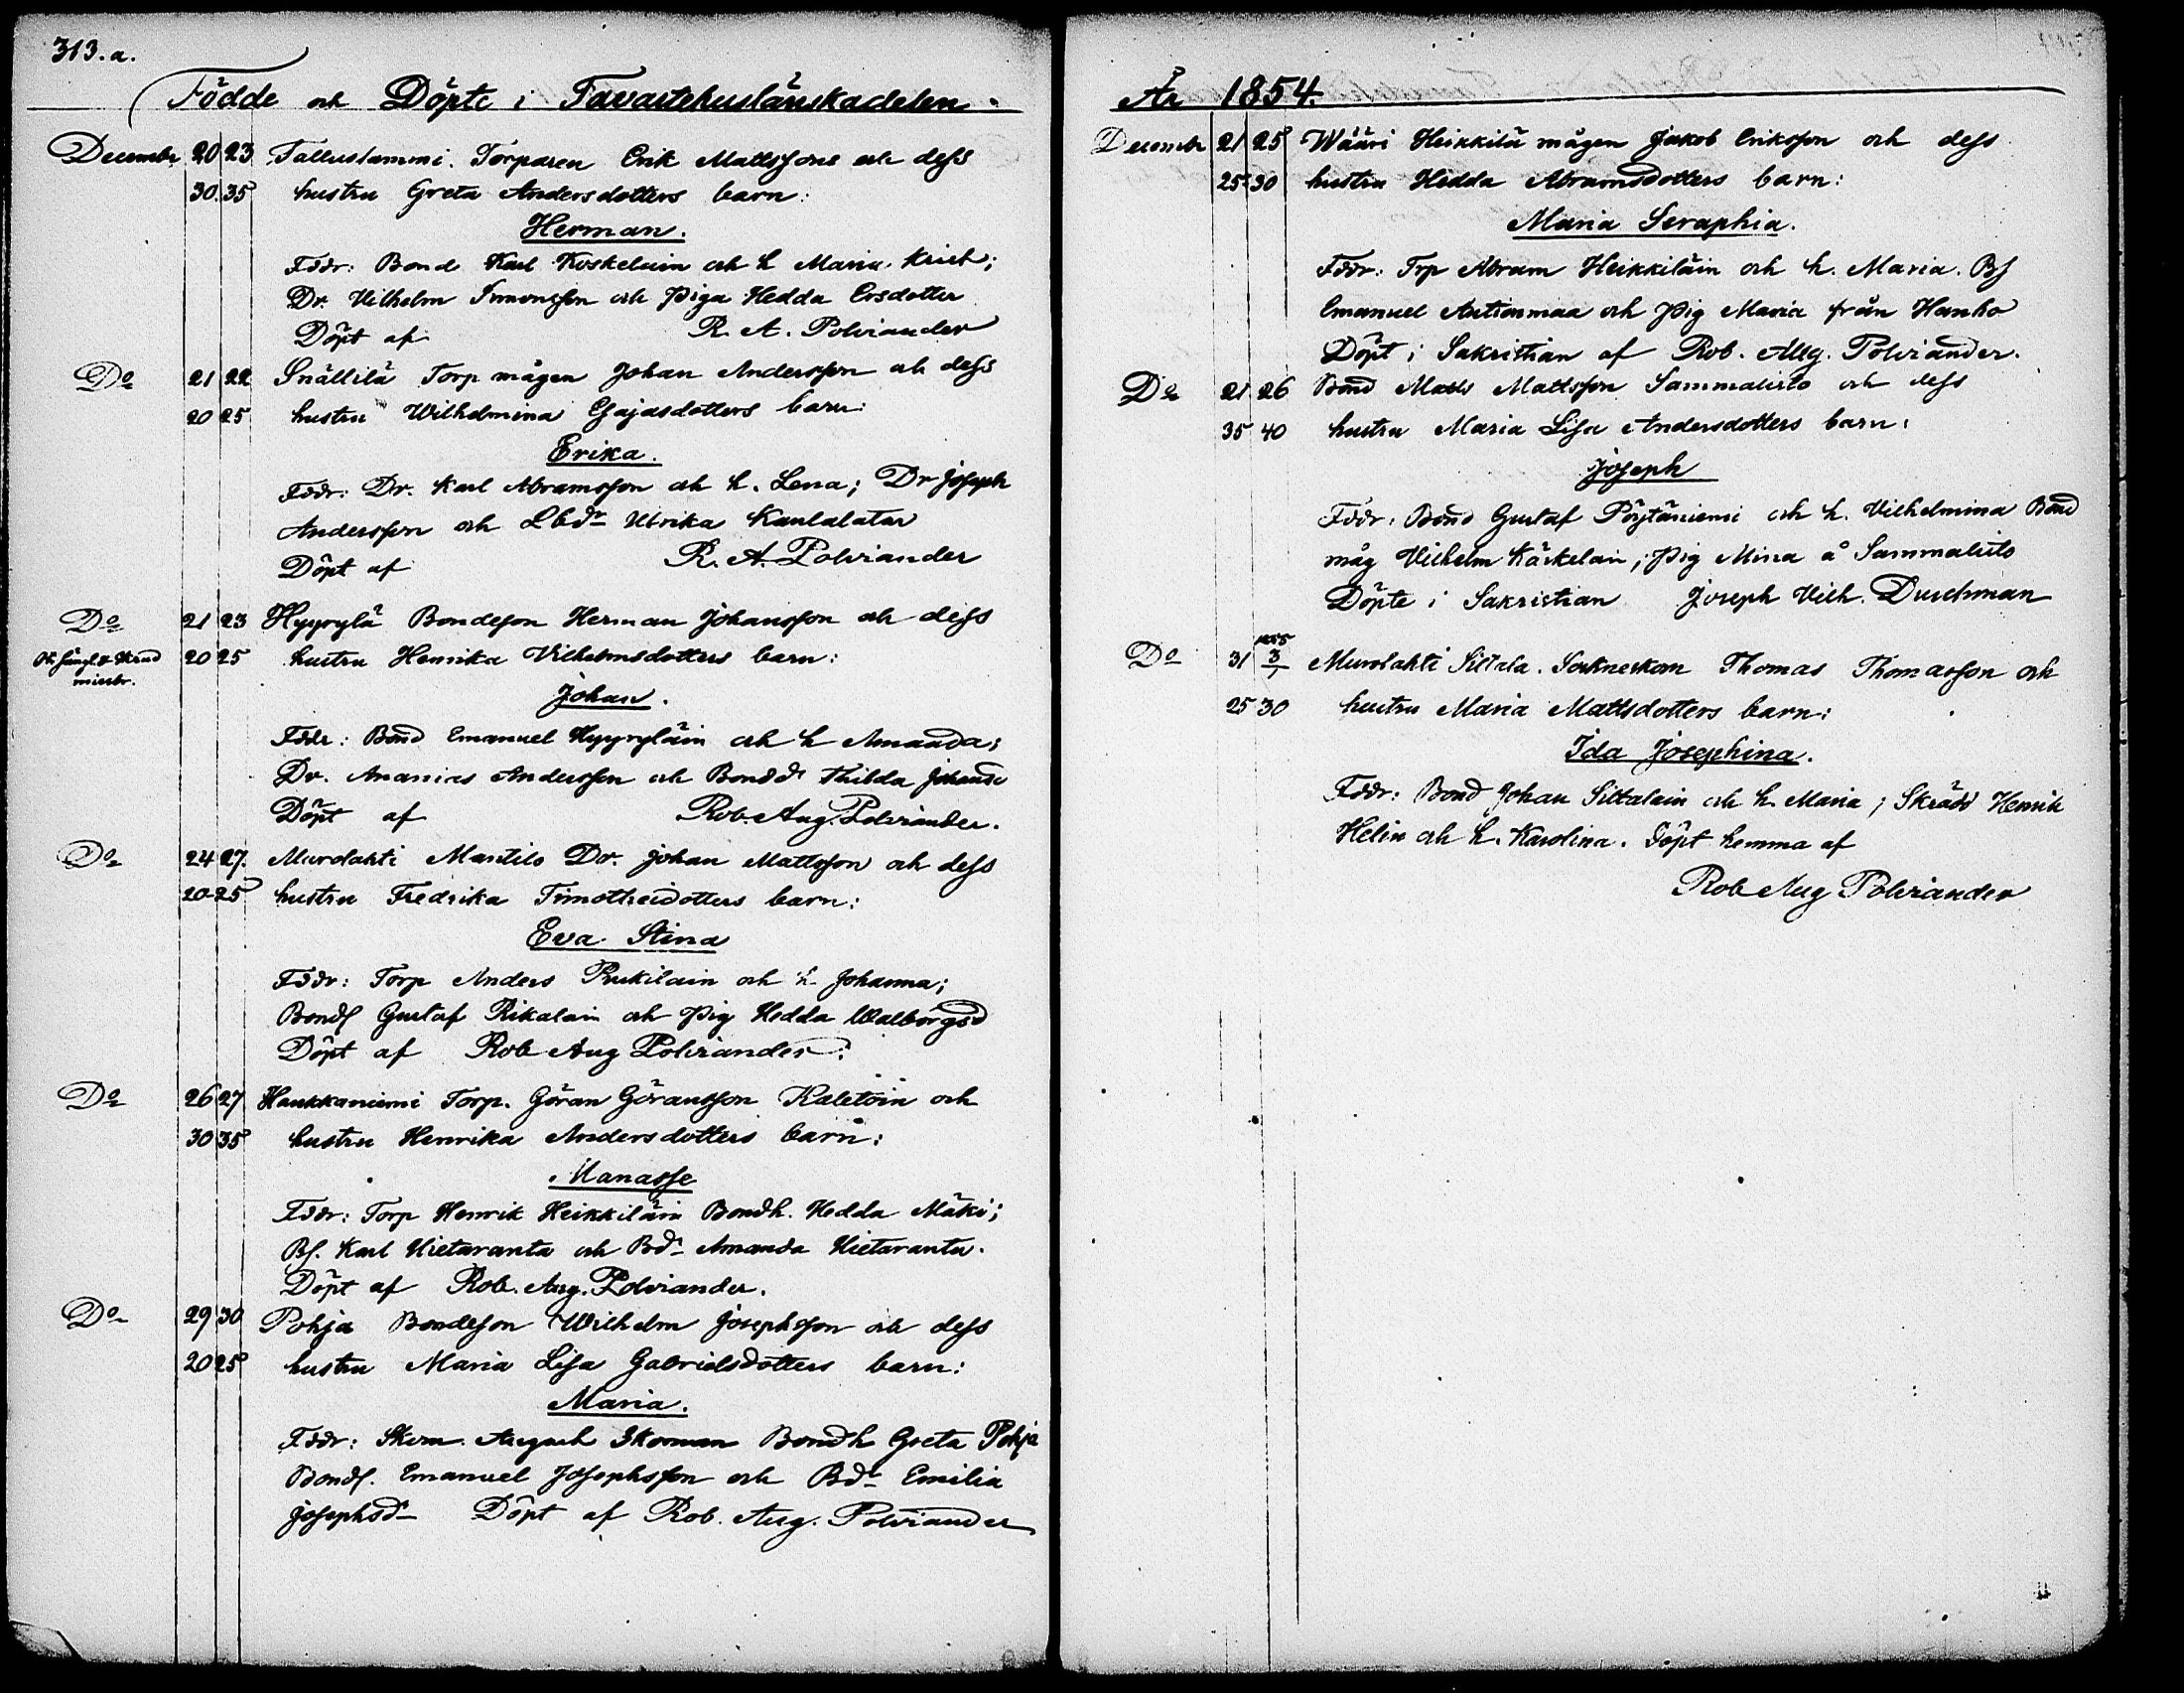 313.a.
Födde och Döpte i Tavastehuslänskadelen.
December 20 23 Tallustammi. Torparen Erik Mattssons och dess
30. 35 hustru Greta Andersdotters barn:
Herman.
Fddr: Bond Karl Koskelain och h Maria
Dr. Vilhelm Simonsson och Piga Hedda Ersdotter
Döpt af R. A. Polviander
Do 21 22 Snällilä Torp mågen Johan Andersson och dess
20 25 hustru Wilhelmina Esajasdotters barn:
Erika.
Fddr: Dr. Karl Abramsson och h. Lena; Dr Joseph
Andersson och Ulrika
Döpt af R. A. Polviander
Do 21 23 Hyyrylä Bondeson Herman Johansson och dess
20 25 hustru Henrika Vilhelmsdotters barn:
Johan.
Fddr: Bond Emanuel Hyyryläin och h Amanda;
Dr. Ananias Andersson och Bondd. Thilda Johansd
Döpt af Rob. Aug. Polviander.
Do 24 27. Murolahti Mantilo Dr. Johan Mattsson och dess
20-25 hustru Fredrika Timotheidotters barn:
Eva Stina
Fddr: Torp Anders Rukilain och h. Johanna;
Bonds Gustaf Rikalain och Pig Hedda Walborgsd
Döpt af Rob Aug Polviander.
Do 26 27 Haukkaniemi Torp. Göran Göransson Kaletoin och
30 35 hustru Henrika Andersdotters barn:
Manasse
Fddr: Torp Henrik Heikkiläin Bondh. Hedda Mäki;
Bs. Karl Hietaranta och Bdr Amanda Hietaranta.
Döpt af Rob. Aug. Polviander.
Do 29 30 Pohja Bondeson Wilhelm Josephsson och dess
20 25 hustru Maria Lisa Gabrielsdotters barn:
Maria.
Fddr: Skom. August Skoman Bondh Greta Pohja
Bonds. Emanuel Josephsson och Bdr Emilia
Josephsd Döpt af Rob. Aug. Polviander
År 1854.
December 21 25 Wääri Heikkilä mågen Jakob Eriksson och dess
25-30 hustru Hedda Abramsdotters barn:
Maria Seraphia.
Fddr: Trp Abram Heikkiläin och h. Maria. Bs
Emanuel Antionmaa och Pig Maria från Hanho
Döpt i Sakristian af Rob. Aug. Polviander.
Do 21 26 Bond Matts Mattsson Sammalisto och dess
35 40 hustru Maria Lisa Andersdotters barn:
Joseph
Fddr: Bond Gustaf Pöytäniemi och h. Vilhelmina Bond
måg Vilhelm Kärkelain; Pig Mina å Sammalisto
Döpte i Sakristian Joseph Vilh. Duschman
Do 31 1855 3/1 Murolahti Siltala. Sockneskom Thomas Thomasson och
25 30 hustru Maria Mattsdotters barn:
Ida Josephina.
Fddr: Bond Johan Siltalain och h. Maria; Skrädd Henrik
Helin och h. Karolina. Döpt hemma af
Rob Aug Polviander